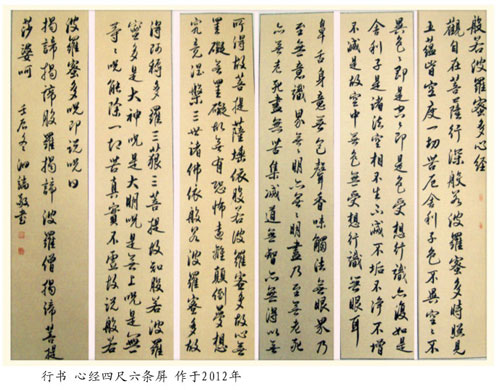 般若波羅蜜多心经
觀自在菩薩行深般若波羅蜜多時照見
五蕴皆空度一切苦厄舍利子色不異空空不
異色色即是空空即是色受想行識亦復如是
舍利子是諸法空相不生不滅不垢不淨不增
不減是故空中無色無受想行識無眼耳
鼻舌身意無色聲香味觸法無眼界乃
至無意識界無無明亦無無明盡乃至無老死
亦無老死盡無苦集滅道無智亦無得以無
所得故菩提薩埵依般若波羅蜜多故心無
罣礙無罣礙故無有恐怖遠離顛倒夢想
究竟涅槃三世諸佛依般若波羅蜜多故
得阿耨多羅三藐三菩提故知般若波羅
蜜多是大神咒是大明咒是無上咒是無
等々咒能除一切苦真實不虚故說般若
波羅蜜多咒即說咒曰
揭諦揭諦般羅揭諦波羅僧揭諦菩提
莎婆呵
敬書
行书 心经四尺六条屏 作于2012年